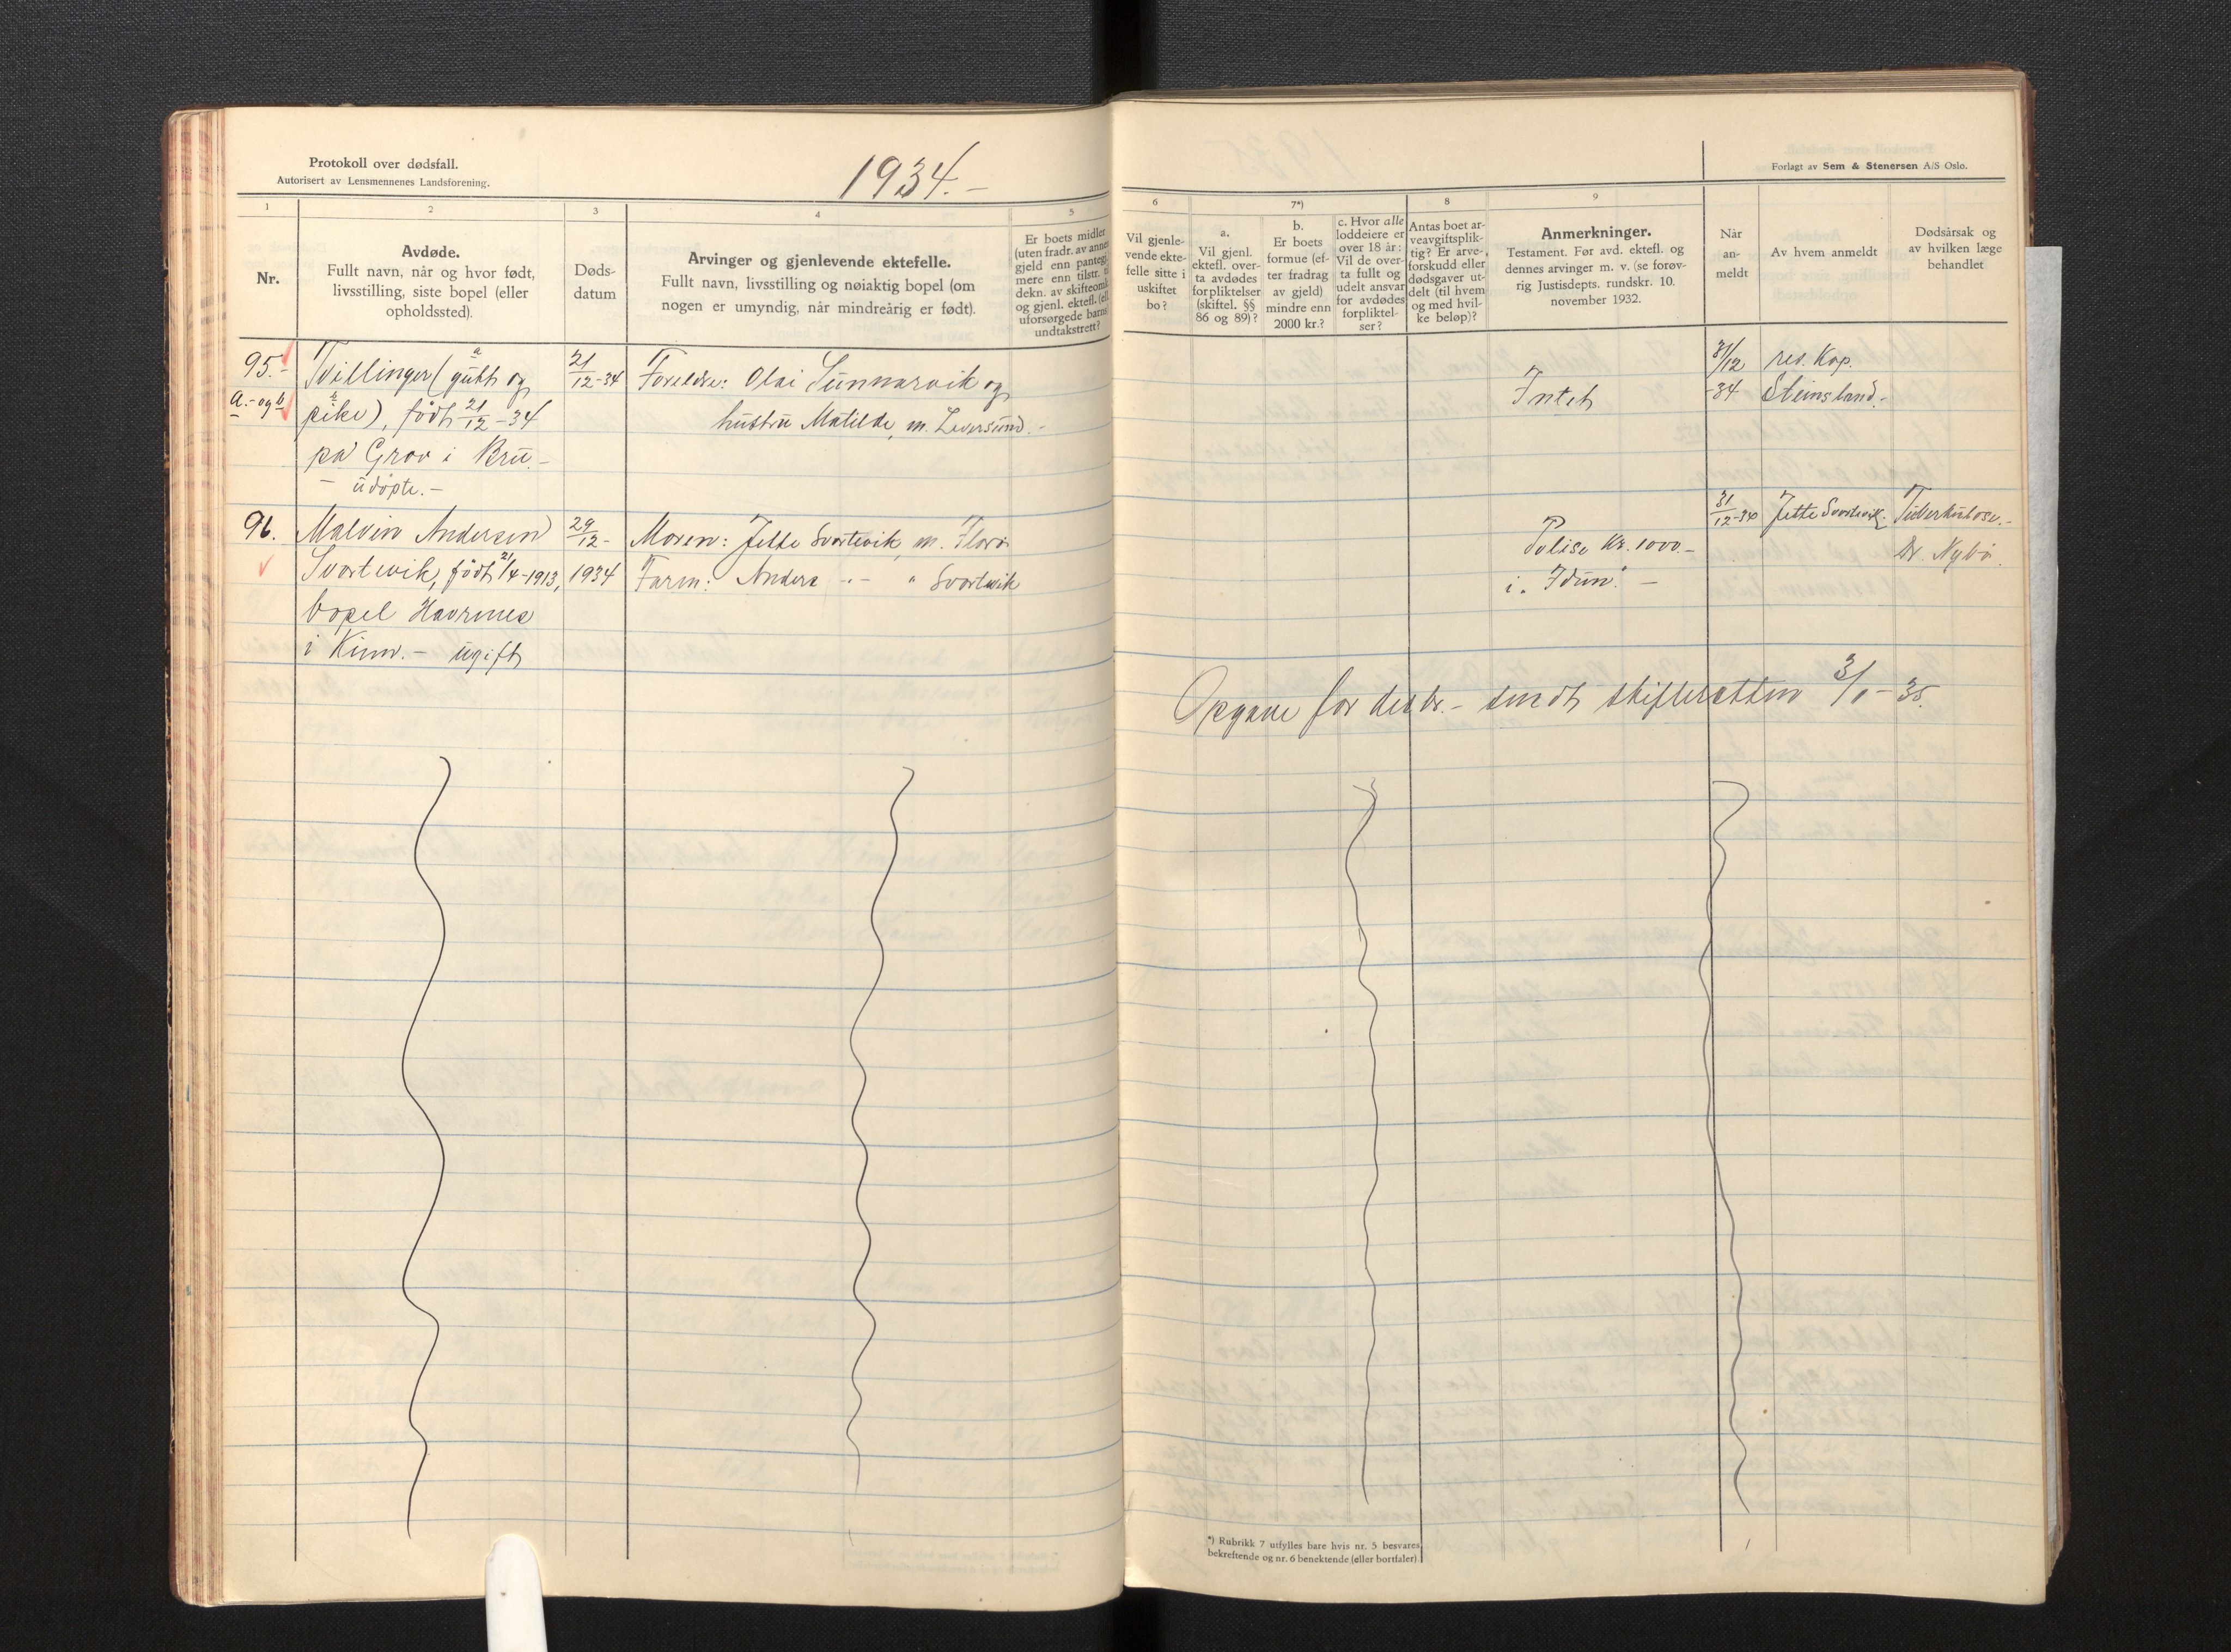 Protokoll over dødsfall.
Autorisert av Lensmennenes Landsforening.
1934.-
1
2
3
4
5
Nr.
Avdøde.
Fullt navn, når og hvor født,
livsstilling, siste bopel (eller
opholdssted).
Døds-
datum
Arvinger og gjenlevende ektefelle.
Fullt navn, livsstilling og nøiaktig bopel (om
nogen er umyndig, når mindreårig er født).
Er boets midler
(uten fradr. av annen
gjeld enn pantegj.
mere enn tilstr. ti
dekn. av skifteomk
og gjenl. ektefl. (ell.
uforsørgede barns
undtakstrett?
95.-
a.- og b
Tvillinger (gutt og
a
b
pike), født 21/12-34
på Grov i Bru.-
- udøpte.-
21/12-34
Foreldre: Olai Sunnarvik og
hustru Matilde, m.
96.
Malvin Andersen
Svortevik, født 21/4-1913,
bopel Havrenes
i Kinn.- ugift
29/12-
1934
Moren: Jette Svortevik, m. Florø
Farm: Anders -"- " Svortevik
Forlagt av Sem & Stenersen A/S Oslo.
6
7*)
8
9
Vil gjenle-
vende ekte-
felle sitte i
uskiftet
bo?
a.
Vil gjenl.
ektefl. over-
ta avdødes
forpliktelser
(skiftel. §§
86 og 89)?
b.
Er boets
formue (ef-
ter fradrag
av gjeld)
mindre enn
2000 kr.?
c. Hvor alle
loddeiere er
over 18 år:
Vil de over-
ta fullt og
udelt ansvar
for avdødes
forpliktel-
ser?
Antas boet ar-
veavgiftsplik-
tig? Er arve-
forskudd eller
dødsgaver ut-
delt (til hvem
og med hvil-
ke beløp)?
Anmerkninger.
Testament. Før avd. ektefl. og
dennes arvinger m. v. (se forøv-
rig Justisdepts. rundskr. 10.
november 1932.
Når
an-
meldt
Av hvem anmeldt
Dødsårsak og
av hvilken læge
behandlet
Intet
31/12
-34
res. Kap.
Steinsland.-
Polise Kr. 1000.-
i "Idun".-
31/12-34
Jette Svortevik.
Tuberkulose.-
Dr. Nybø
Opgave for desbr.- sendt skifteretten 3/1-35.
*) Rubrikk 7 utfylles bare hvis nr. 5 besvares
bekreftende og nr. 6 benektende (eller bortfaler).